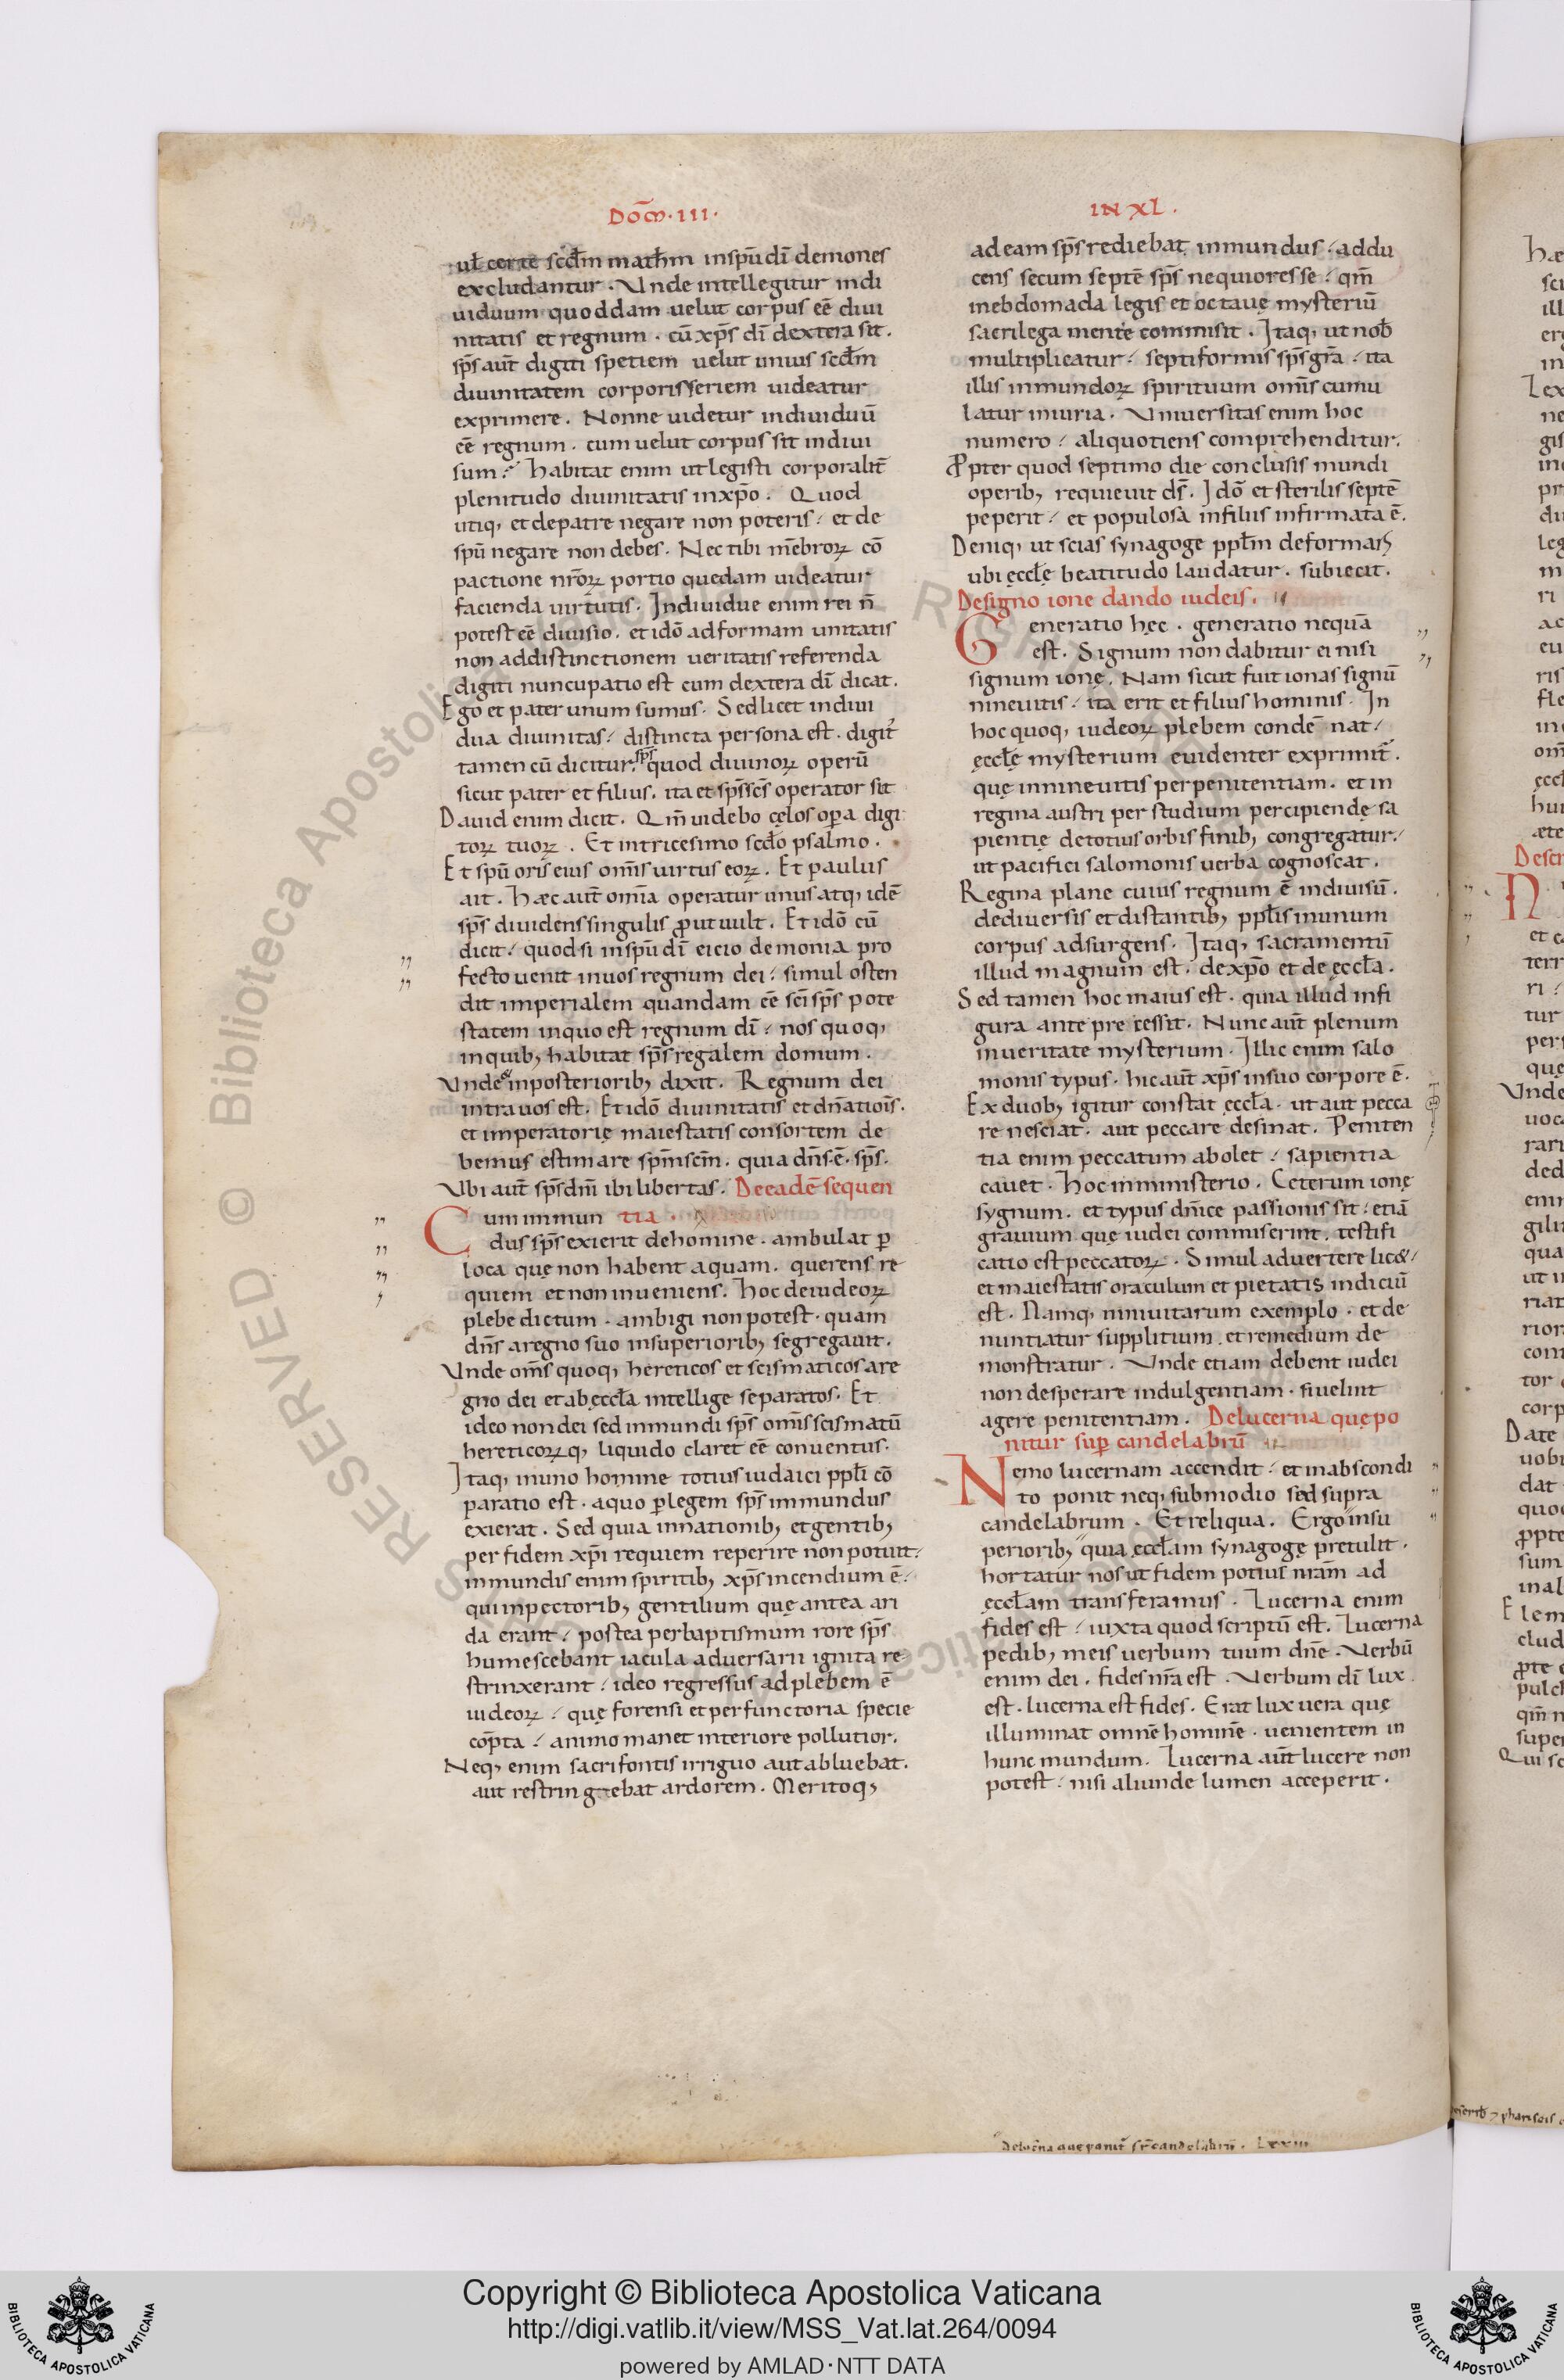 Dōm̄·III·
ul̄ certe scđm math̄m inspū dī demones
excludantur. Unde intellegitur indi
uiduum quoddam uelut corpus eē diui
nitatis et regnum. cū xp̄s dī dextera sit.
sp̄s aūt digiti spetiem uelut unius scđm
diuinitatem corporis seriem uideatur
exprimere. Nonne uidetur indiuiduū
eē regnum. cum uelut corpus sit indiui
sum? habitat enim ut legisti corporalit̄
plenitudo diuinitatis inxp̄o. Quod
utiq, et depatre negare non poteris. et de
spū negare non debes. Nec tibi mēbroꝝ cō
pactione nr̄oꝝ portio quedam uideatur
facienda uirtutis. Indiuidue enim rei n̄
potest eē diuisio. et idō adformam unitatis
non addistinctionem ueritatis referenda
digiti nuncupatio est cum dextera dī dicat.
Ego et pater unum sumus. Sed licet indiui
dua diuinitas. distincta persona est. digit᷑
tamen cū dicitur sp̄s quod diuinoꝝ operū
sicut pater et filius. ita et sp̄s sc̄s operator sit
Dauid enim dicit. Qm̄ uidebo cęlos op̄a digi
toꝝ tuoꝝ. Et intricesimo scđo psalmo.
Et spū oris eius om̄is uirtus eoꝝ. Et paulus
ait. Hæc aūt om̄ia operatur unus atq, idē
sp̄s diuidens singulis ꝓut uult. Et idō cū
dicit. quod si inspū dī eicio demonia pro
fecto uenit inuos regnum dei. simul osten
dit imperialem quandam eē sc̄i sp̄s pote
statem inquo est regnum dī. nos quoq,
inquib; habitat sp̄s regalem domum.
Unde inposteriorib; dixit. Regnum dei
intra uos est. Et idō diuinitatis et dn̄atiois̄.
et imperatorię maiestatis consortem de
bemus estimare sp̄m sc̄m. quia dn̄s ē sp̄s.
Ubi aūt sp̄s dn̄i ibi libertas. De eadē sequen
Cum immun tia.
dus sp̄s exierit dehomine. ambulat ꝑ
loca quę non habent aquam. querens re
quiem et non inueniens. Hoc deiudeoꝝ
plebe dictum. ambigi non potest. quam
dn̄s aregno suo insuperiorib; segregauit.
Unde om̄s quoq, hereticos et scismaticos are
gno dei et ab ęccl̄a intellige separatos. Et
ideo non dei sed inmundi sp̄s om̄is scismatū
hereticoꝝq, liquido claret eē conuentus.
Itaq, inuno homine totius iudaici ppl̄i cō
paratio est. aquo ꝑlegem sp̄s immundus
exierat. Sed quia innationib; et gentib;
per fidem xp̄i requiem reperire non potuit.
inmundis enim spiritib; xp̄s incendium ē.
qui inpectorib; gentilium quę antea ari
da erant. postea perbaptismum rore sp̄s
humescebant iacula aduersarii ignita re
strinxerant. ideo regressus ad plebem ē
iudeoꝝ. quę forensi et perfunctoria specie
cōpta. animo manet interiore pollutior.
Neq, enim sacri fontis irriguo aut abluebat.
aut restringuebat ardorem. Meritoq;
IN XL.
ad eam sp̄s rediebat inmundus. addu
cens secum septē sp̄s nequiores se. qm̄
inebdomada legis et octauę mysteriū
sacrilega mente commisit. Itaq, ut nob̄
multiplicatur. septiformis sp̄s gr̄a. ita
illis inmundoꝝ spirituum om̄s cumu
latur iniuria. Uniuersitas enim hoc
numero. aliquotiens comprehenditur.
Ꝓpter quod septimo die conclusis mundi
operib; requieuit ds̄. Idō et sterilis septē
peperit. et populosa infilius infirmata ē.
Deniq, ut scias synagoge ppl̄m deformari
ubi ęccl̄ę beatitudo laudatur. subiecit.
De signo ione dando iudeis.
Generatio hęc. generatio nequā
est. Signum non dabitur ei nisi
signum ionę. Nam sicut fuit ionas signū
nineuitis. ita erit et filius hominis. In
hoc quoq, iudeoꝝ plebem condēnat.
ęccl̄ę mysterium euidenter exprimit̄.
quę innineuitis per penitentiam. et in
regina austri per studium percipiendę sa
pientię de totius orbis finib; congregatur.
ut pacifici salomonis uerba cognoscat.
Regina plane cuius regnum ē indiuisū.
dediuersis et distantib; ppl̄is inunum
corpus adsurgens. Itaq, sacramentū
illud magnum est. dexp̄o et de ęccl̄a.
Sed tamen hoc maius est. quia illud infi
gura ante precessit. Nunc aūt plenum
inueritate mysterium. Illic enim salo
monis typus. hic aūt xp̄s insuo corpore ē.
Ex duob; igitur constat ęccl̄a. ut aut pecca
re nesciat. aut peccare desinat. Peniten
tia enim peccatum abolet. sapientia
cauet. Hoc inministerio. Ceterum ionę
sygnum. et typus dn̄ice passionis sit. etiā
grauium quę iudei commiserint. testifi
catio est peccatoꝝ. Simul aduertere lic&.
et maiestatis oraculum et pietatis indiciū
est. Namq, niniuitarum exemplo. et de
nuntiatur supplitium. et remedium de
monstratur. Unde etiam debent iudei
non desperare indulgentiam. si uelint
agere penitentiam. De lucerna quę po
nitur suꝑ candelabrū
Nemo lucernam accendit. et inabscondi
to ponit neq, submodio sed supra
candelabrum. Et reliqua. Ergo insu
periorib; quia ęccl̄am synagogę pretulit.
hortatur nos ut fidem potius nr̄am ad
ęccl̄am transferamus. Lucerna enim
fides est. iuxta quod scriptū est. Lucerna
pedib; meis uerbum tuum dn̄e. Uerbū
enim dei. fides nr̄a est. Uerbum dī lux
est. lucerna est fides. Erat lux uera quę
illuminat omnē hominē. uenientem in
hunc mundum. Lucerna aūt lucere non
potest. nisi aliunde lumen acceperit.
Copyright © Biblioteca Apostolica Vaticana
http://digi.vatlib.it/view/MSS_Vat.lat.264/0094
powered by AMLAD·NTT DATA
BIBLIOTECA APOSTOLICA VATICANA
BIBLIOTECA APOSTOLICA VATICANA